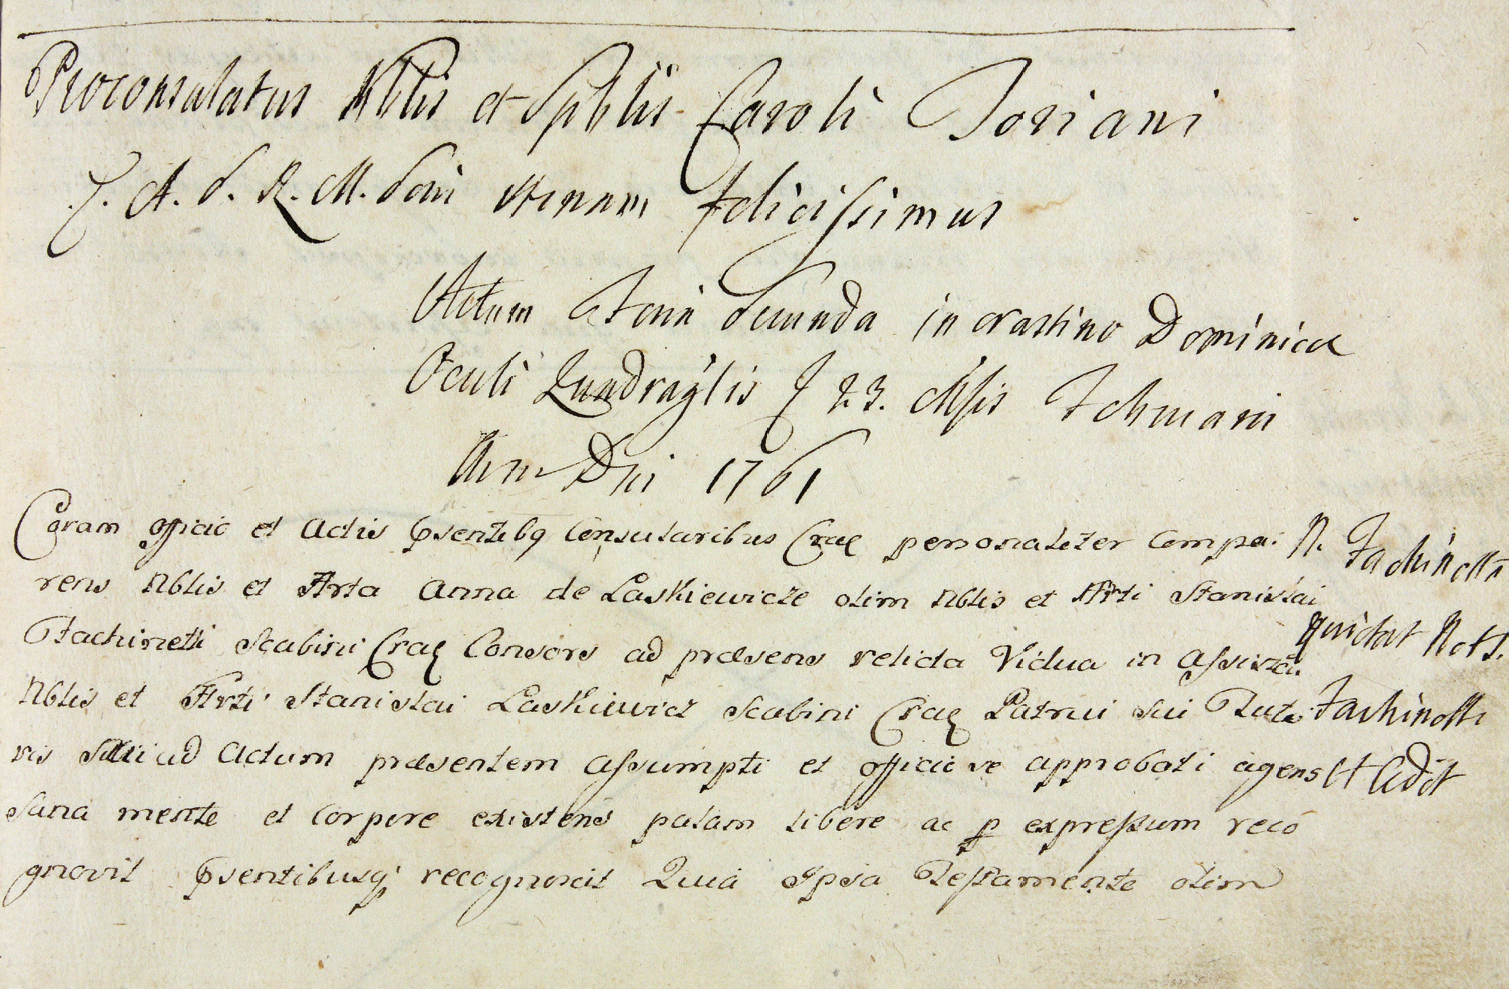 Proconsulatus Nblis et Sphlis Caroli Toriani
S. R. M. utinam felicissimus
Actum Feria Secunda in crastino Dominicæ
Oculi Quadraglis 23. Msis Februarii
Anno Dni 1761
Coram officio et Actis psentibq Consularibus Crac personaliter Compa:
rens Nblis et Frta Anna de Laskiewicze olim Nblis et Frti Stanislai
Fachinetti Scabini Crac Consors ad præsens relicta Vidua in Assisten.
Nblis et Frti Stanislai Laskiewicz Scabini Crac Patrui sui Tuto:
ris sibi ad Actum præsentem assumpti et officiose approbati agens
Sana mente et corpore existens palam libere ac p expressum reco
gnovit psentibusq recognoscit Quia Ipsa Testamente olim
N. Fachinetti
quietat Nots.
Fachinetti